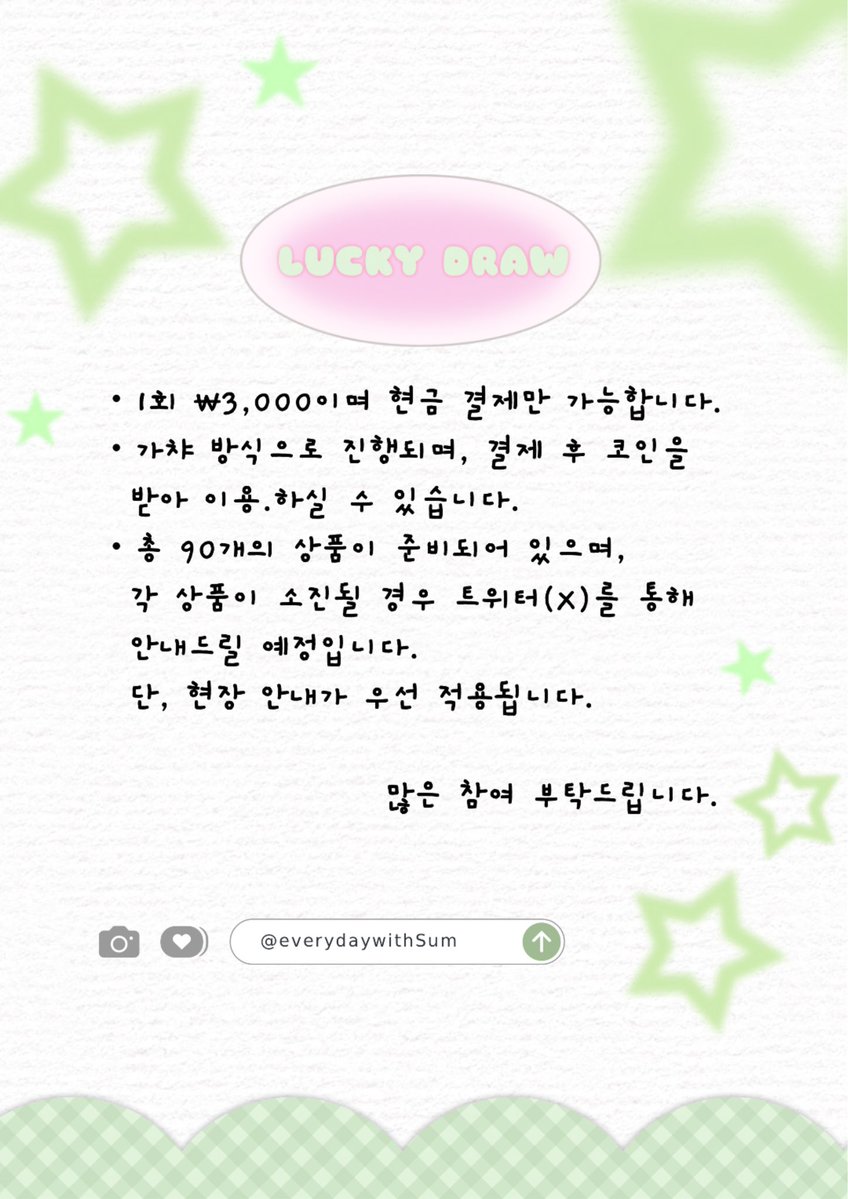 LUCKY DRAW
• 1회 ₩3,000이며 현금 결제만 가능합니다.
• 가챠 방식으로 진행되며, 결제 후 코인을
받아 이용.하실 수 있습니다.
• 총 90개의 상품이 준비되어 있으며,
각 상품이 소진될 경우 트위터(X)를 통해
안내드릴 예정입니다.
단, 현장 안내가 우선 적용됩니다.
많은 참여 부탁드립니다.
@everydaywithSum